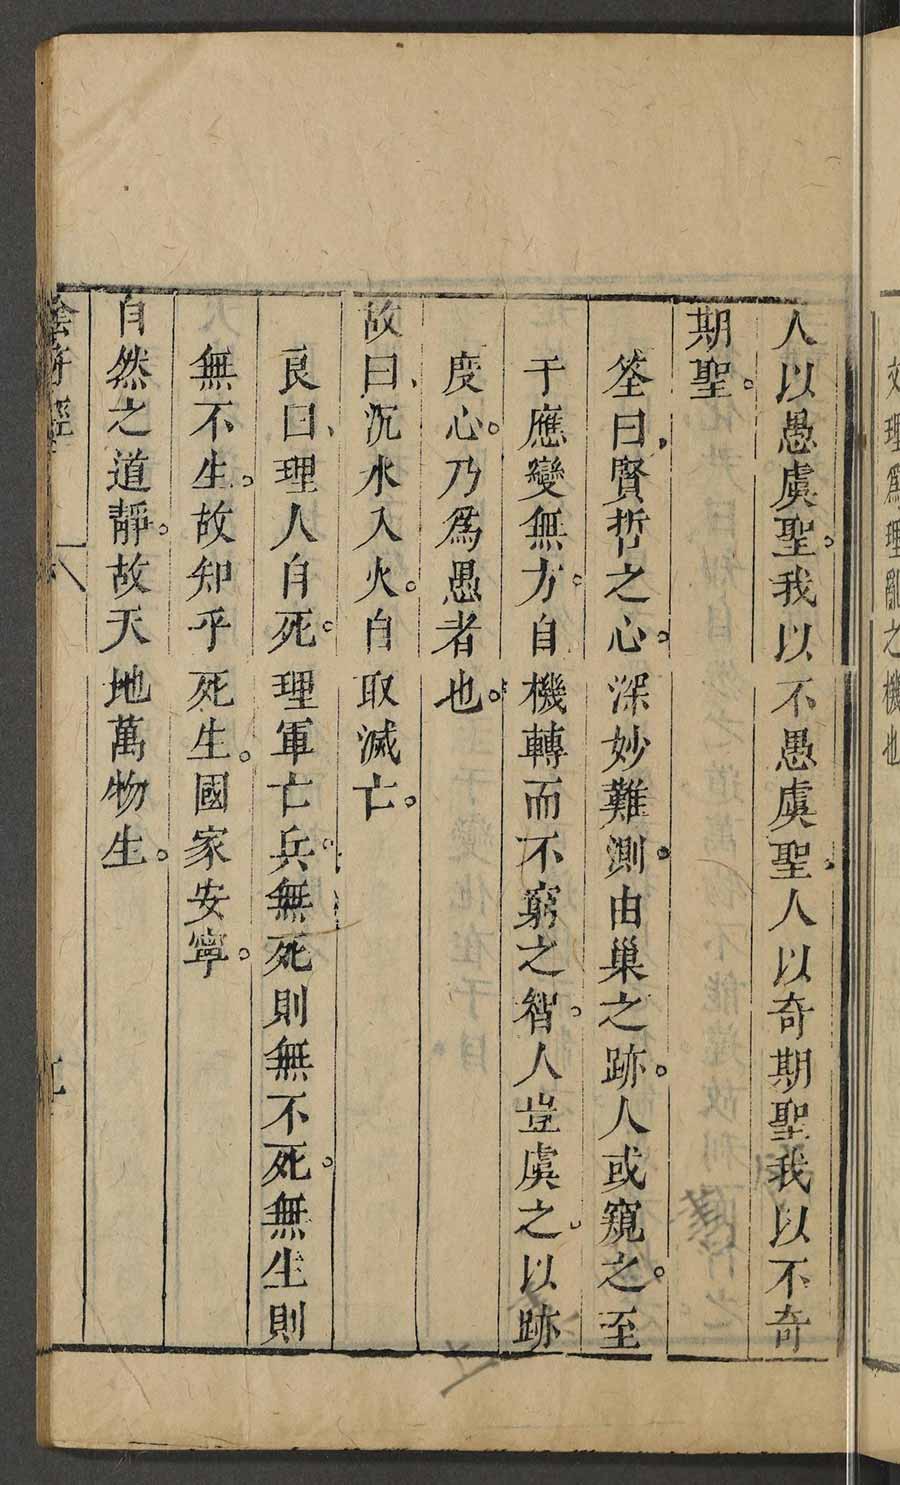 文理爲理亂之機也
人以愚虞聖。我以不愚虞聖。人以奇期聖我以不奇
期聖。
筌曰、賢哲之心。深妙難測。由巢之跡。人或窺之。至
于應變無方。自機轉而不窮之智。人豈虞之。以跡
度心。乃爲愚者也。
故曰、沉水入火。自取滅亡。
良曰、理人自死。理軍亡兵。無死則無不死。無生則
無不生。故知乎死生。國家安寧。
自然之道靜。故天地萬物生。
陰符經